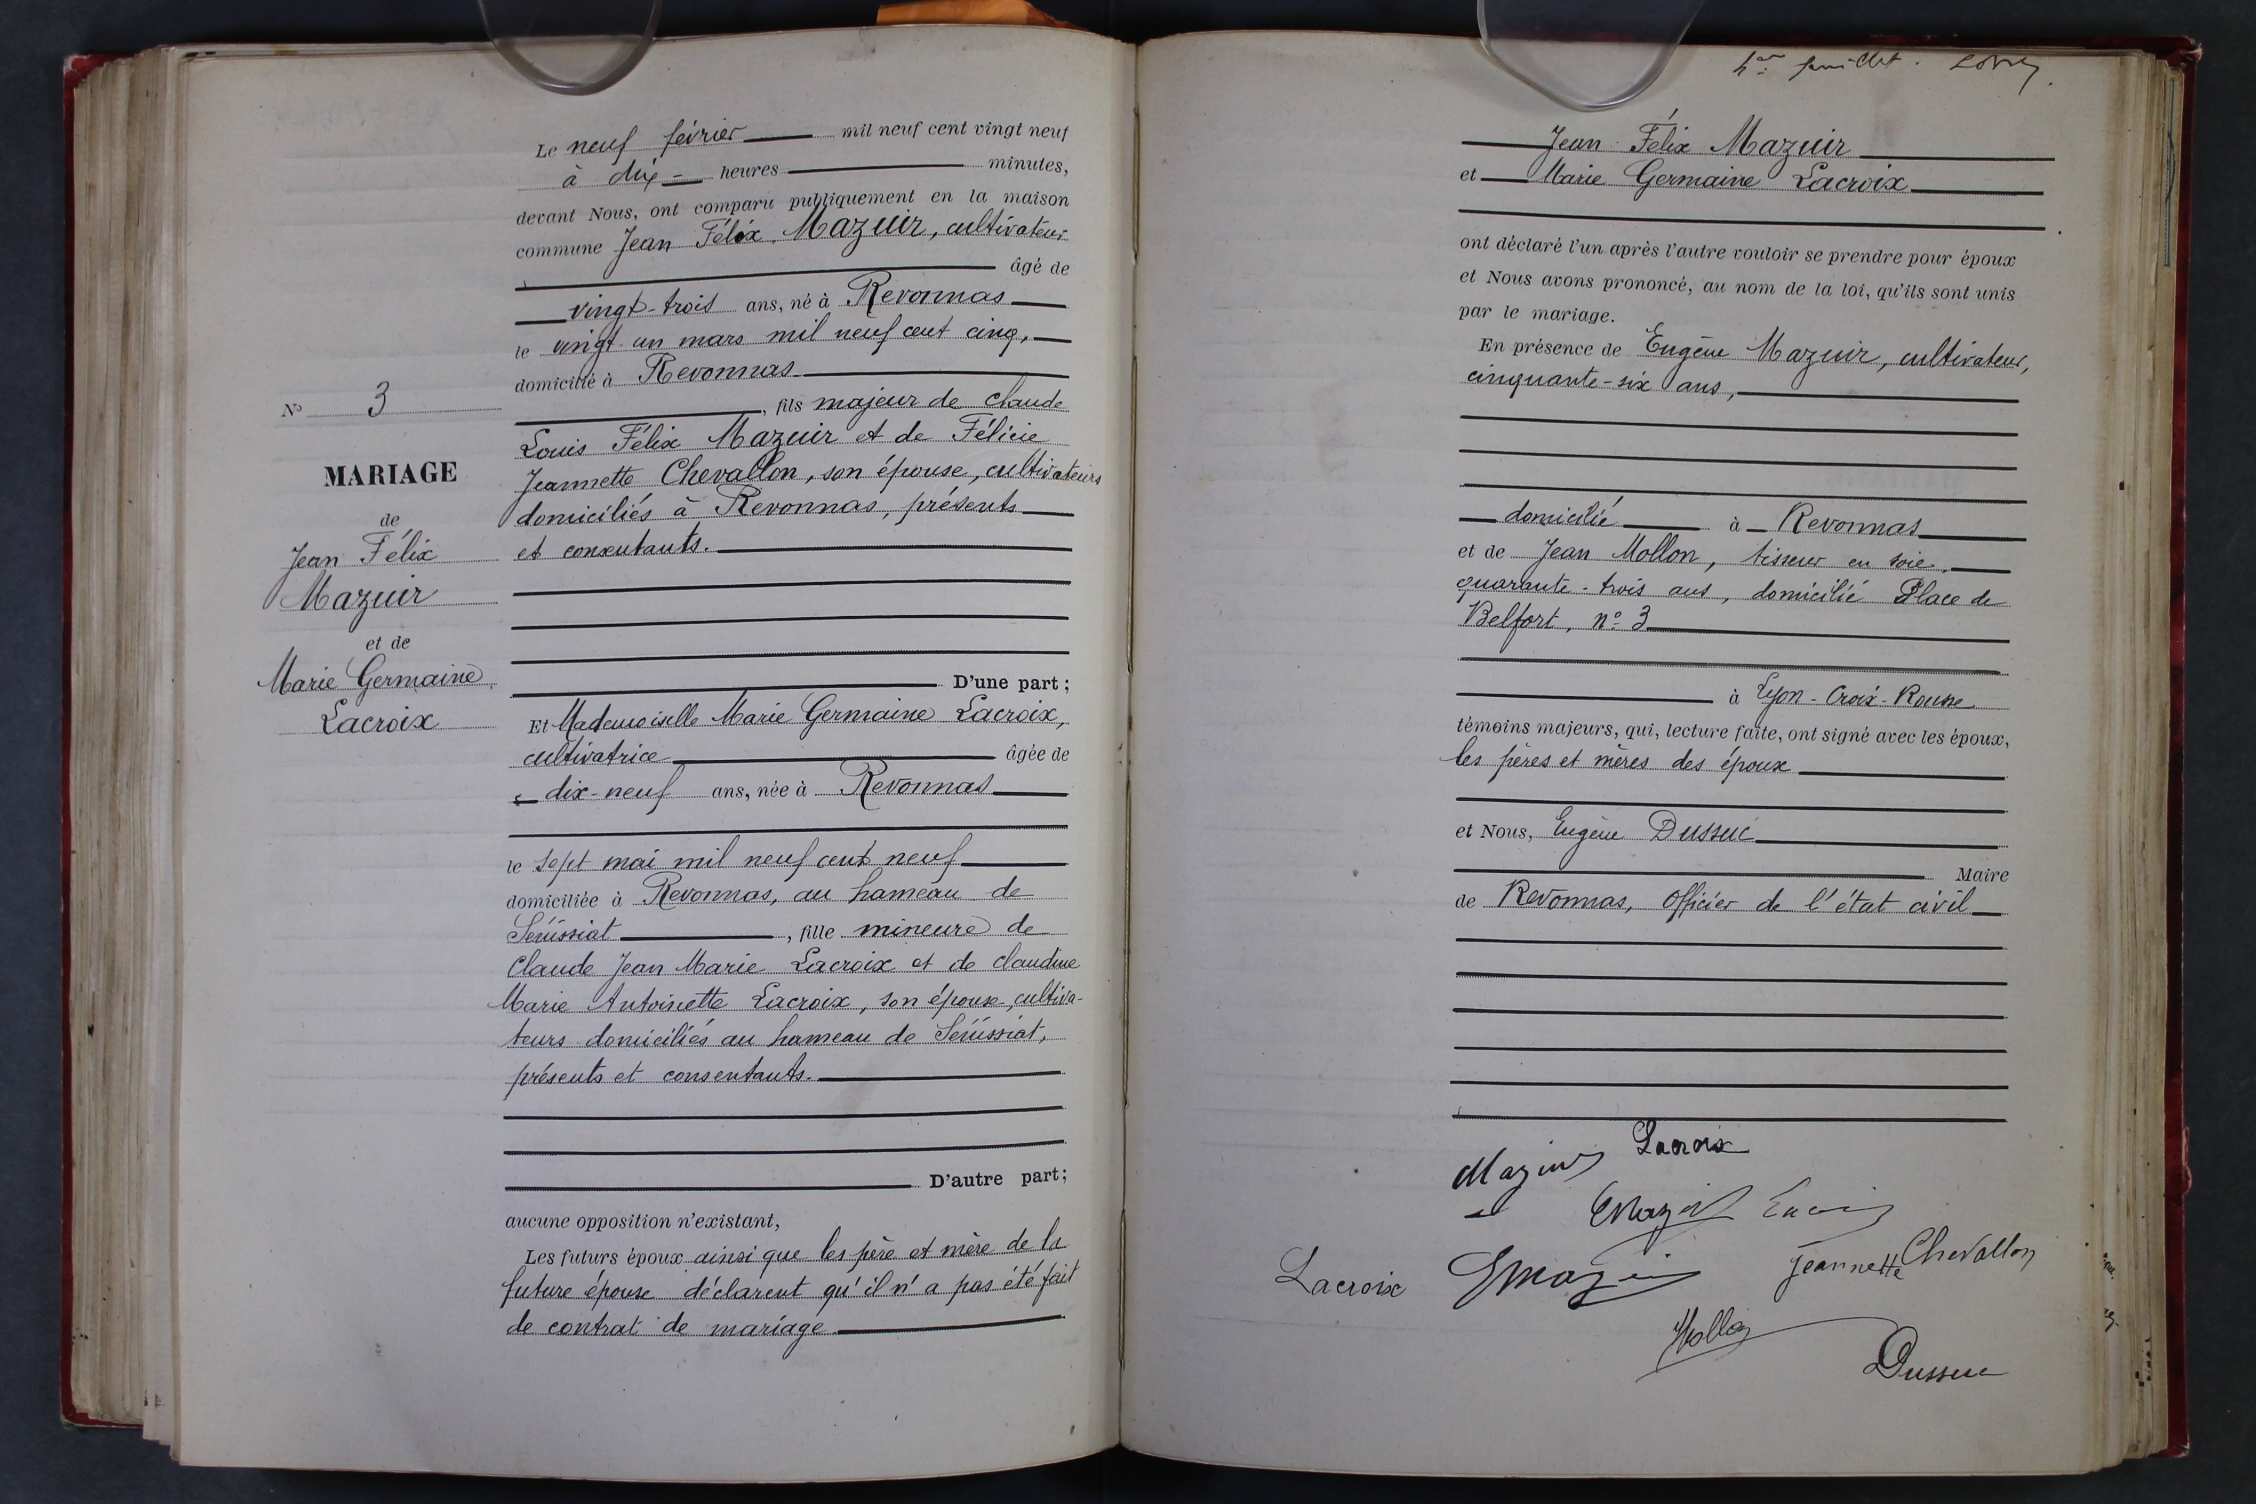 N° 3
MARIAGE
de
Jean Félix
Mazuir
et de
Marie Germaine
Lacroix
Le neuf février mil neuf cent vingt neuf
à dix heures minutes,
devant Nous, ont comparu publiquement en la maison
commune Jean Félix Mazuir, cultivateur
âgé de
vingt-trois ans, né à Revonnas
le vingt un mars mil neuf cent cinq,
domicilié à Revonnas
, fils majeur de Claude
Louis Félix Mazuir et de Félicie
Jeannette Chevallon, son épouse, cultivateurs
domiciliés à Revonnas, présents
et consentants.
D'une part;
Et Mademoiselle Marie Germaine Lacroix,
cultivatrice âgée de
dix-neuf ans, née à Revonnas
le sept mai mil neuf cent neuf
domiciliée à Revonnas, au hameau de
Sénissiat, fille mineure de
Claude Jean Marie Lacroix et de Claudine
Marie Antoinette Lacroix, son épouse, cultiva-
teurs domiciliés au hameau de Sénissiat,
présents et consentants.
D'autre part;
aucune opposition n'existant,
Les futurs époux ainsi que les père et mère de la
future épouse déclarent qu'il n'a pas été fait
de contrat de mariage
feuillet.
Jean Félix Mazuir
et Marie Germaine Lacroix
ont déclaré l'un après l'autre vouloir se prendre pour époux
et Nous avons prononcé, au nom de la loi, qu'ils sont unis
par le mariage.
En présence de Eugène Mazuir, cultivateur,
cinquante-six ans,
domicilié à Revonnas
et de Jean Mollon, tisseur en soie,
quarante-trois ans, domicilié Place de
Belfort, n° 3
à Lyon-Croix-Rousse
témoins majeurs, qui, lecture faite, ont signé avec les époux,
les pères et mères des époux
et Nous, Eugène Dussuc
Maire
de Revonnas, Officier de l'état civil
Mazuir Lacroix
Lacroix Jeannette Chevallon
Mollon
Dussuc